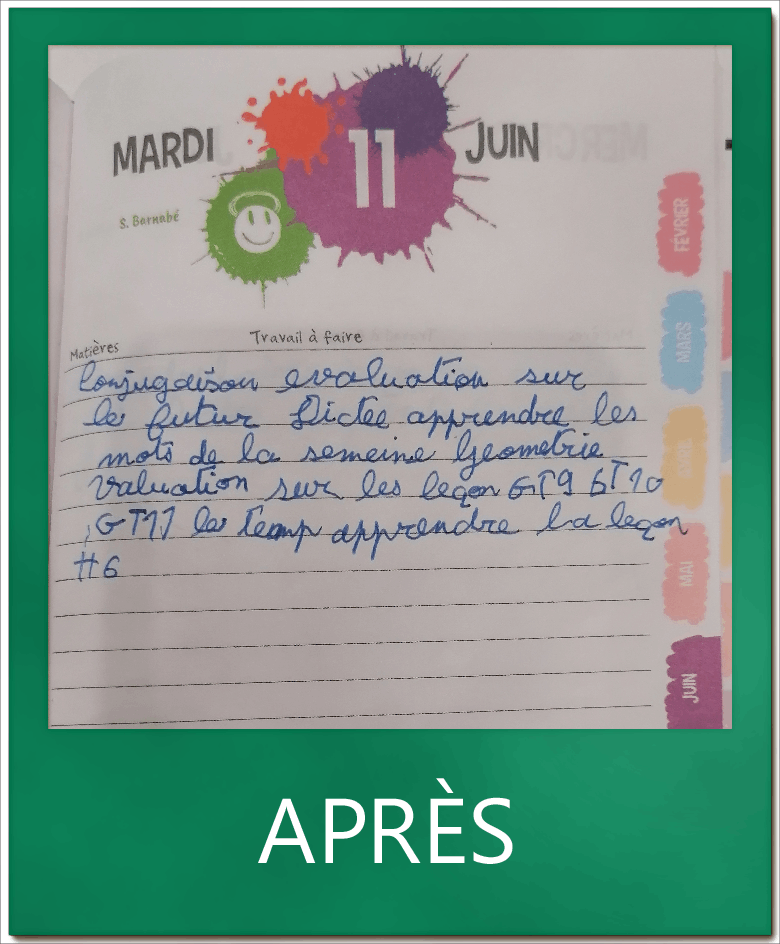 MARDI 11 JUIN
S. Barnabé
FÉVRIER
MARS
MAI
JUIN
Matières Travail à faire
Conjugaison evaluation sur
le futur Dictee apprendre les
mots de la semeine Geometrie
valuation sur les leçon GT9 GT10
, GT11 le temp apprendre la leçon
#6
APRÈS